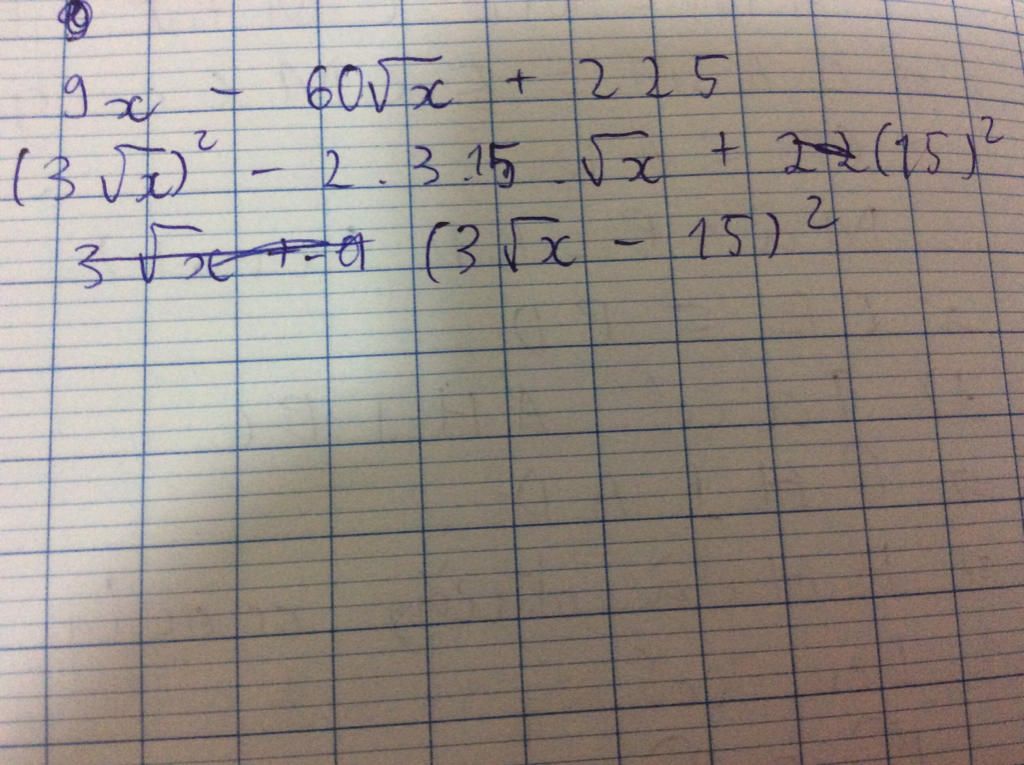 9x - 60√x + 225
(3√x)² - 2 . 3 . 15 . √x + (15)²
(3√x - 15)²